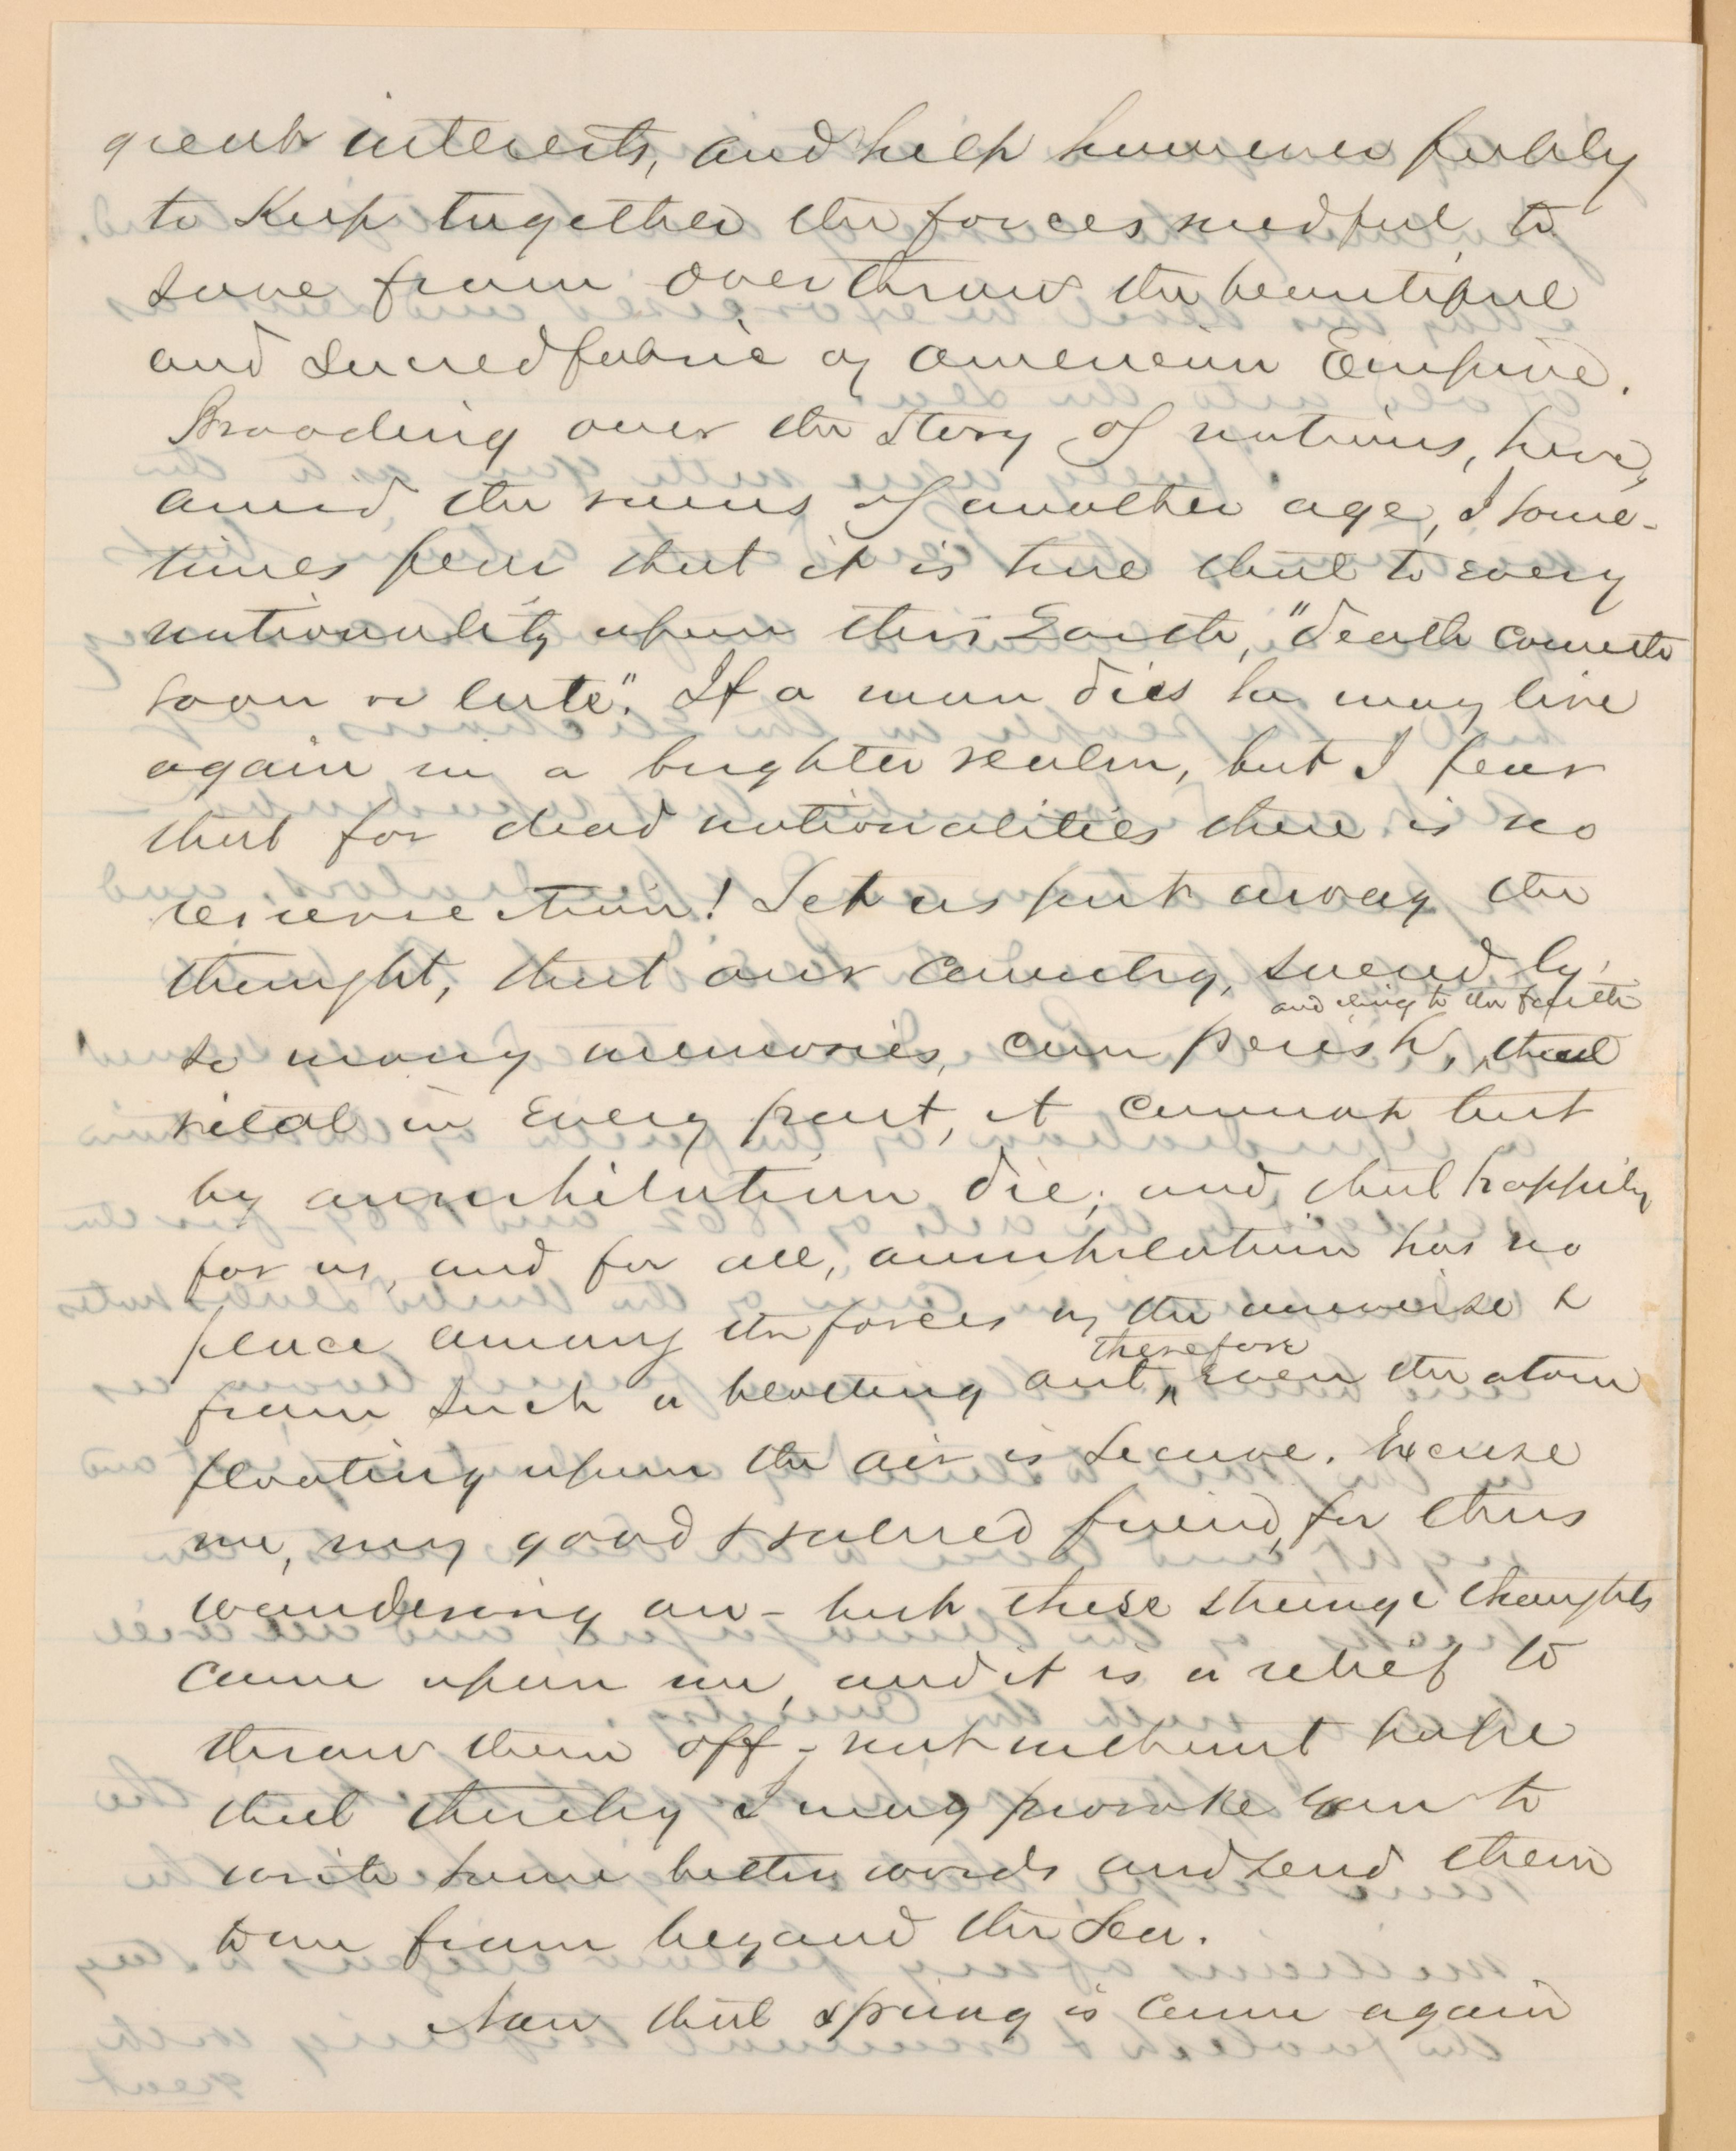 great interests, and help however feebly
to Keep together the forces needful, to
save from overthrow the beautiful
and sacred fabric of American Empire.
Brooding over the Story of nations, here,
amid, the ruins of another age, I some-
times fear that it is true that to every
nationality upon this Earth, "death cometh
soon or late". If a man dies he may live
again in a brighter realm, but I fear
that for dead nationalities there is no
resurrection! Let us put away the
thought, that our Country, sacred by,
and cling to the faith
so many memories, can perish, that
vital in Every part, it cannot but
by annihilation die; and, that happily
for us, and for all, annihilation has no
place among the forces of the universe &
therefore
from such a blotting out, even the atom
floating upon the air is secure. Excuse
me, my good & valued friend, for thus
wandering on - but these strange thoughts
came upon me, and it is a relief to
throw them off - not without hope
that thereby I may provoke you to
write some better words and send them
to me from beyond the Sea.
Now that Spring is come again